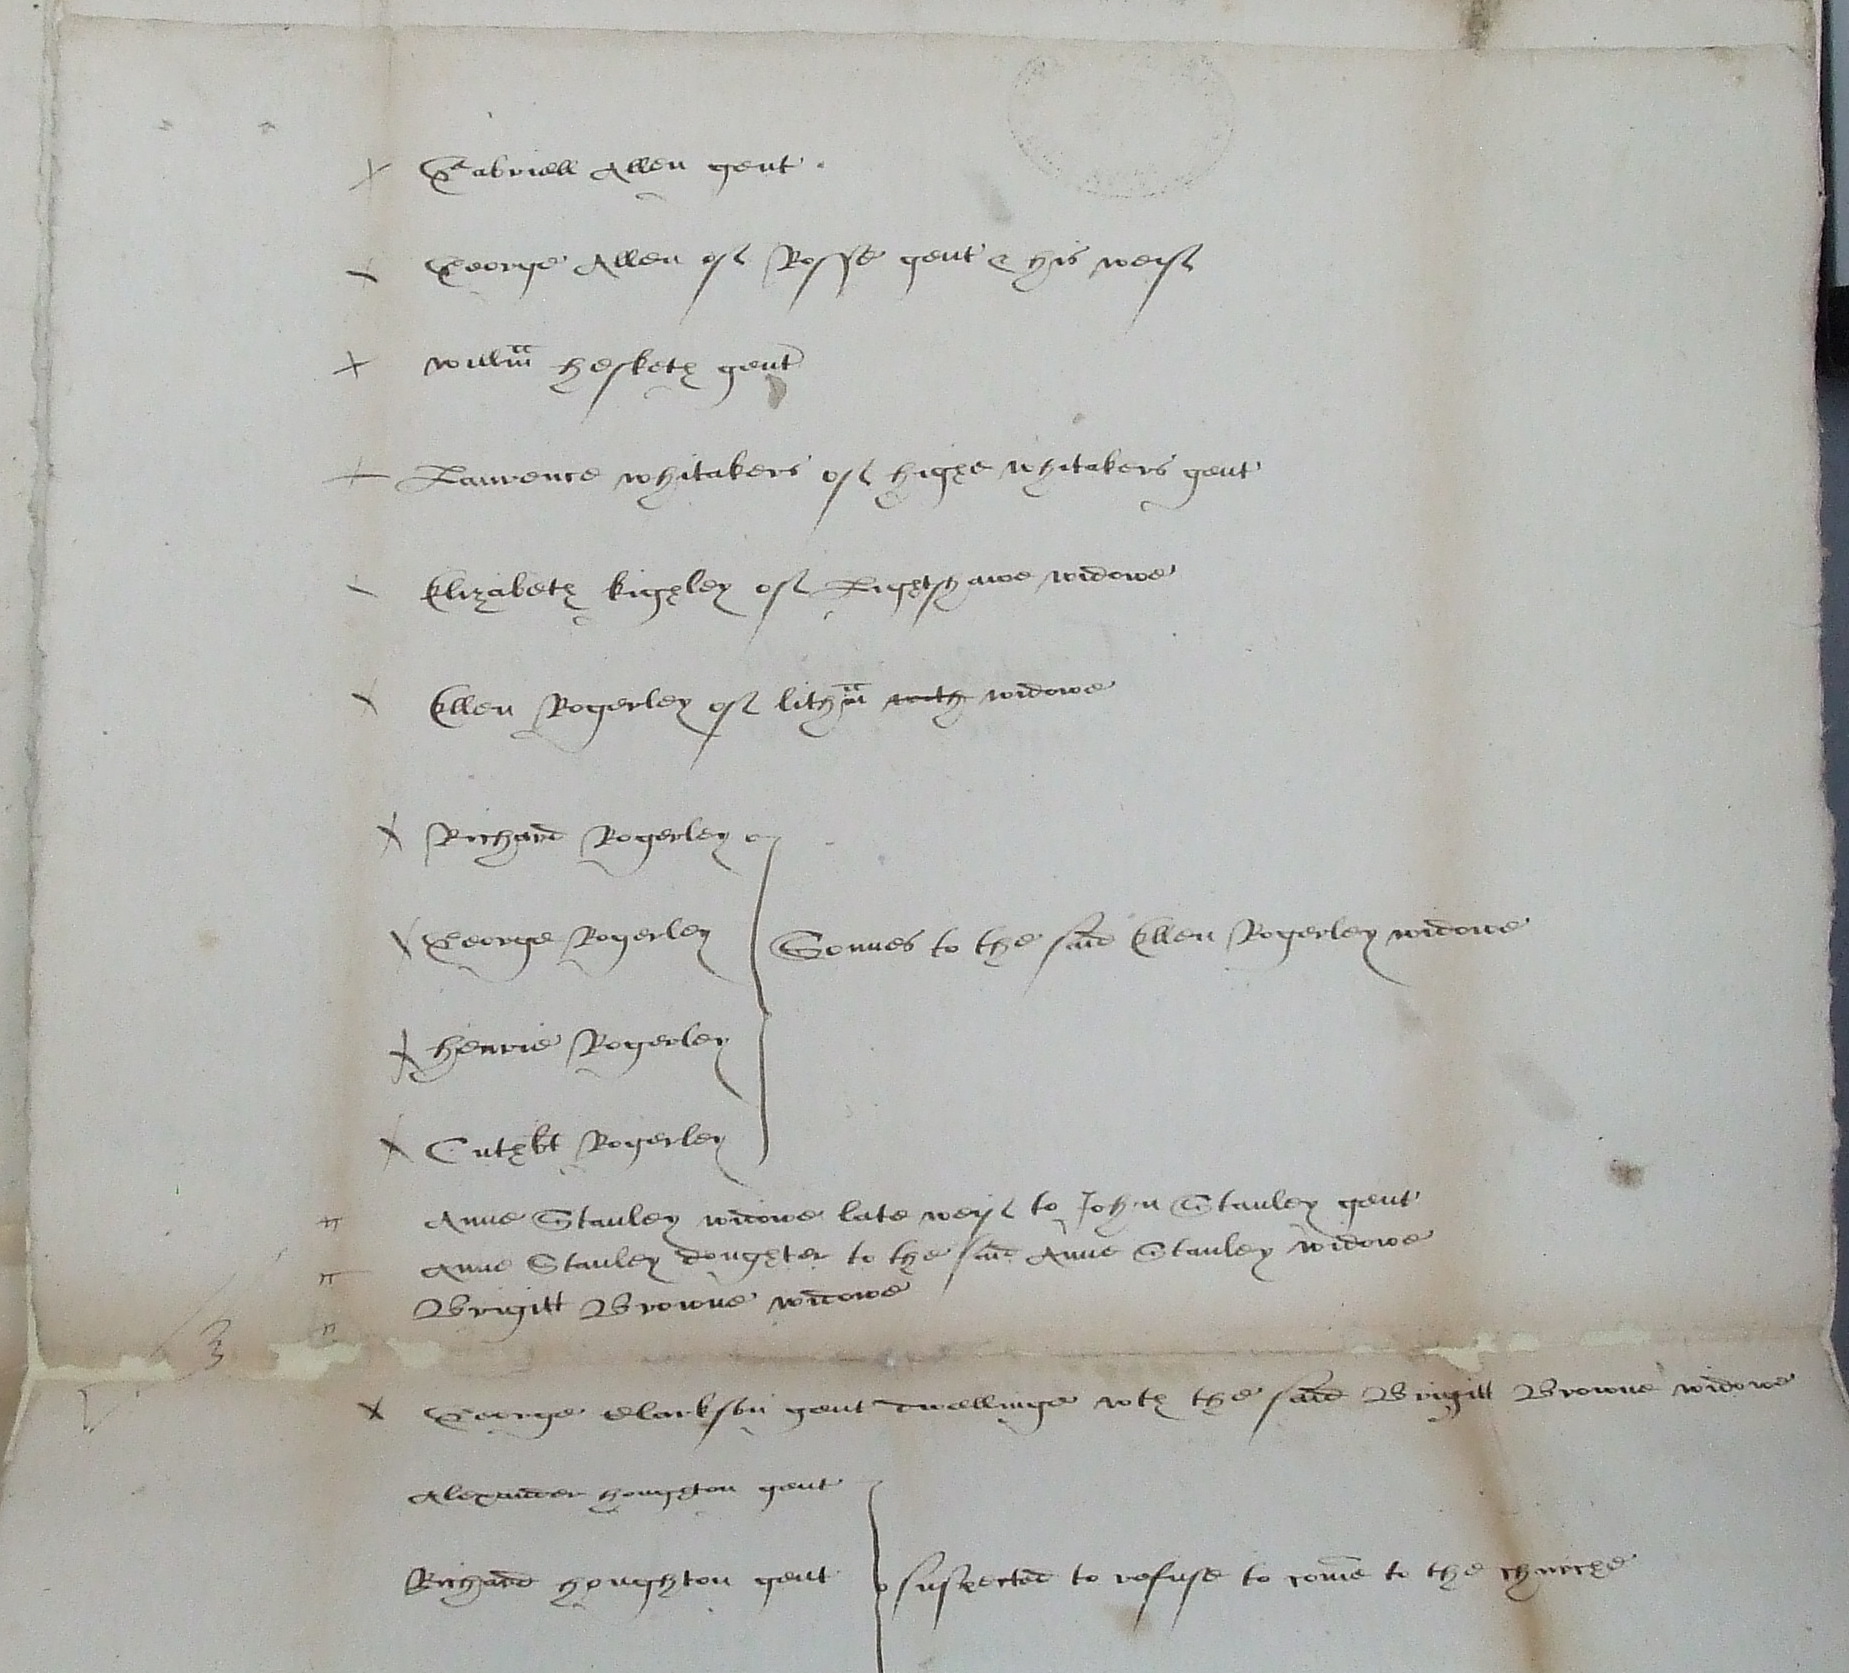 Gabriell Allen gent
George Allen of Rosse gent & his weif
Willm hesketh gent
Laurence Whitakers of highe Whitakers gent
Elizabeth kighley of Lightshawe widowe
Ellen Rogerley of lithm with widowe
Richard Rogerley
George Rogerley Sonnes to the said Ellen Rogerley widowe
Henrie Rogerley
Cuthbt Rogerley
Anne Stanley widowe late weif to John Stanley gent
Anne Stanley doughter to the said Anne Stanley widowe
Brigitt Browne widowe
3
George Clarkson gent dwellinge wth the said Brigitt Browne widowe
Alexander houghton gent
Richard houghton gent suspected to refuse to come to the churche